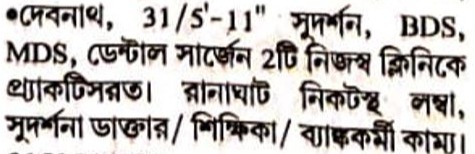 •দেবনাথ, 31/5'-11" সুদর্শন, BDS,
MDS, ডেন্টাল সার্জেন 2টি নিজস্ব ক্লিনিকে
প্র্যাকটিসরত। রানাঘাট নিকটস্থ লম্বা,
সুদর্শনা ডাক্তার/ শিক্ষিকা/ ব্যাঙ্ককর্মী কাম্য।